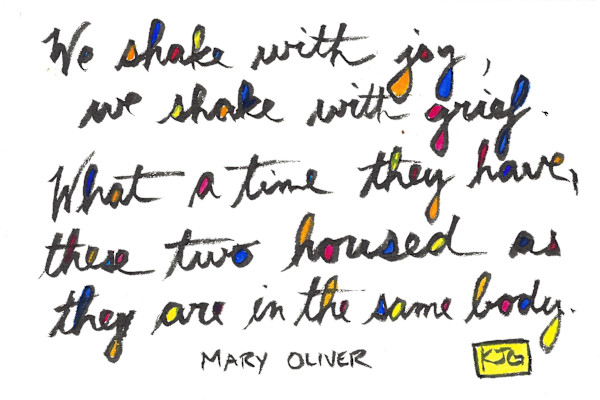 We shake with joy,
we shake with grief.
What a time they have,
these two housed as
they are in the same body.
MARY OLIVER
KJG